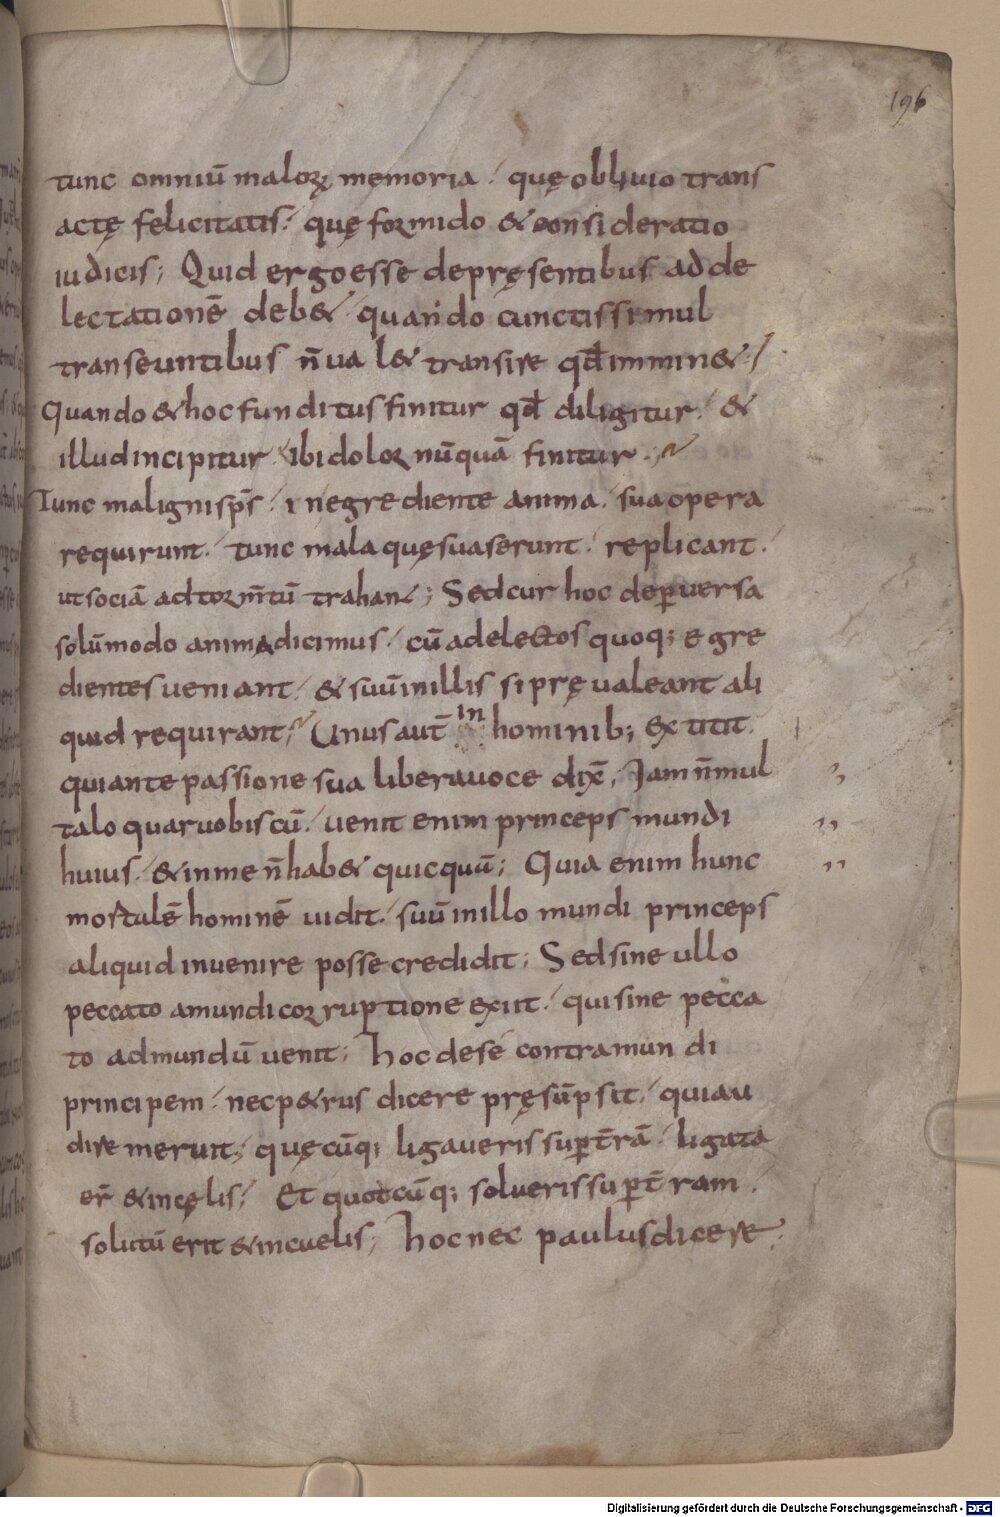 196
tunc omniū maloꝝ memoria / quę oblivio trans
actę felicitatis / quę formido & consideratio
iudicis ; Quid ergo esse de pręsentibus ad de
lectationē deb& / quando cuncti ssimul
transeuntibus n̄ ual& transire qđ immin& /
Quando & hoc funditus finitur qđ diligitur / &
illud incipitur / ibi dolor nūquā finitur
Tunc maligni sp̄s / in egrediente anima / sua opera
requirunt / tunc mala quę suaserunt / replicant /
ut sociā ad torm̄tū trahant ; Sed cur hoc de puersa
solūmodo anima dicimus / cū ad electos quoq; egre
dientes ueniant / & suū in illis si prę ualeant ali
quid requirant ; Unus aut̄ in hominib; extitit
qui ante passione sua libera uoce dix̄ , Iam n̄ mul
ta loquar uobis cū / uenit enim princeps mundi
huius / & in me n̄ hab& quicquū ; Quia enim hunc
mortalē hominē uidit / suū in illo mundi princeps
aliquid inuenire posse credidit ; Sed sine ullo
peccato a mundi corruptione exiit / qui sine pecca
to ad mundū uenit ; hoc de se contra mundi
principem / nec p&rus dicere pręsūpsit / qui au
dire meruit / quęcūq; ligaueris sup t̄rā / ligata
er̄ & in cęlis / Et quotcūq; solueris sup t̄ram .
solutū erit & in cuelis ; hoc nec paulus dicere
Digitalisierung gefördert durch die Deutsche Forschungsgemeinschaft - DFG